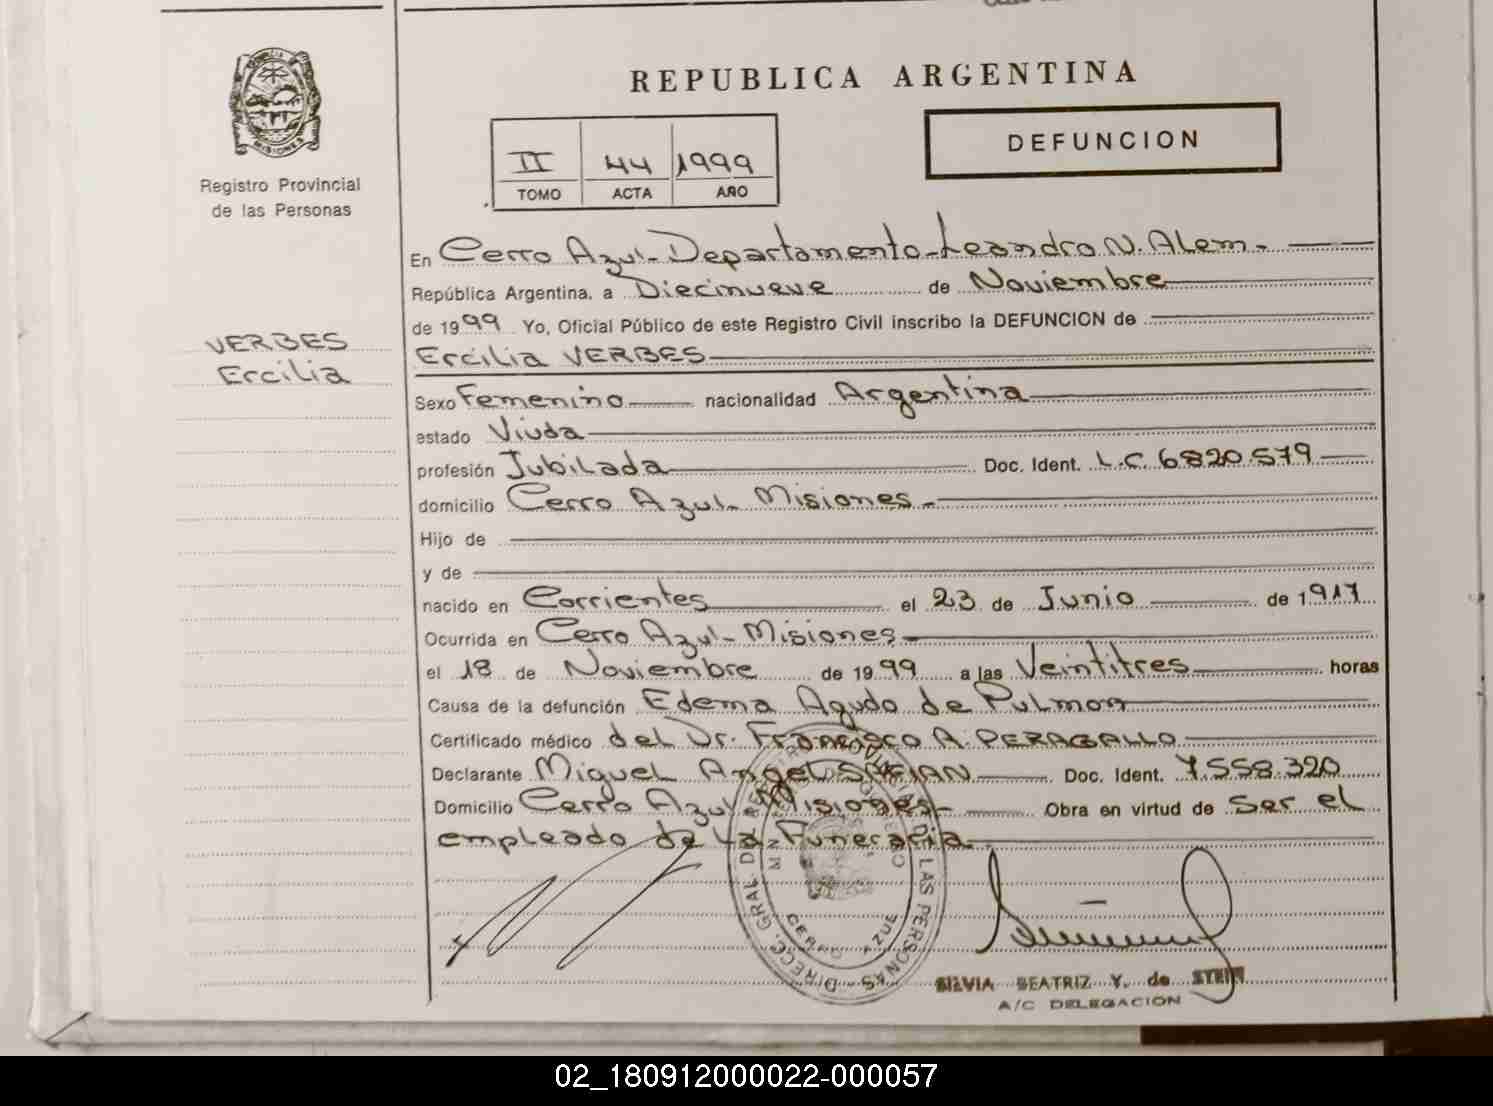 REPUBLICA ARGENTINA
DEFUNCION
II 44 1999
TOMO ACTA AÑO
MISIONES
Registro Provincial
de las Personas
VERBES
Ercilia
En Cerro Azul - Departamento - Leandro N. Alem -
República Argentina, a Diecinueve de Noviembre
de 1999 Yo, Oficial Público de este Registro Civil inscribo la DEFUNCION de
Ercilia VERBES
Sexo Femenino nacionalidad Argentina
estado Viuda
profesión Jubilada Doc. Ident. L.C. 6820.579
domicilio Cerro Azul - Misiones -
Hijo de
y de
nacido en Corrientes el 23 de Junio de 1917
Ocurrida en Cerro Azul - Misiones -
el 18 de Noviembre de 1999 a las Veintitres horas
Causa de la defunción Edema Agudo de Pulmon
Certificado médico del Dr. Francisco A. PERAGALLO
Declarante Miguel Angel Doc. Ident. 7.558.320
Domicilio Cerro Azul Misiones - Obra en virtud de Ser el
empleado de La Funeraria.
DIRECC. GRAL. DEL REGISTRO PROVINCIAL DE LAS PERSONAS
CERRO AZUL
SILVIA BEATRIZ Y. de STEIN
A/C DELEGACION
02_180912000022-000057